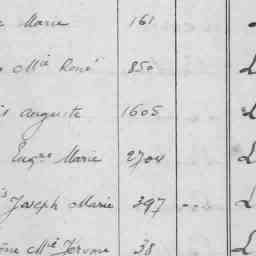 Marie 161
Mie René 850
Auguste 1605
Eugne Marie 2704
Joseph Marie 397
Mie Jérome 38